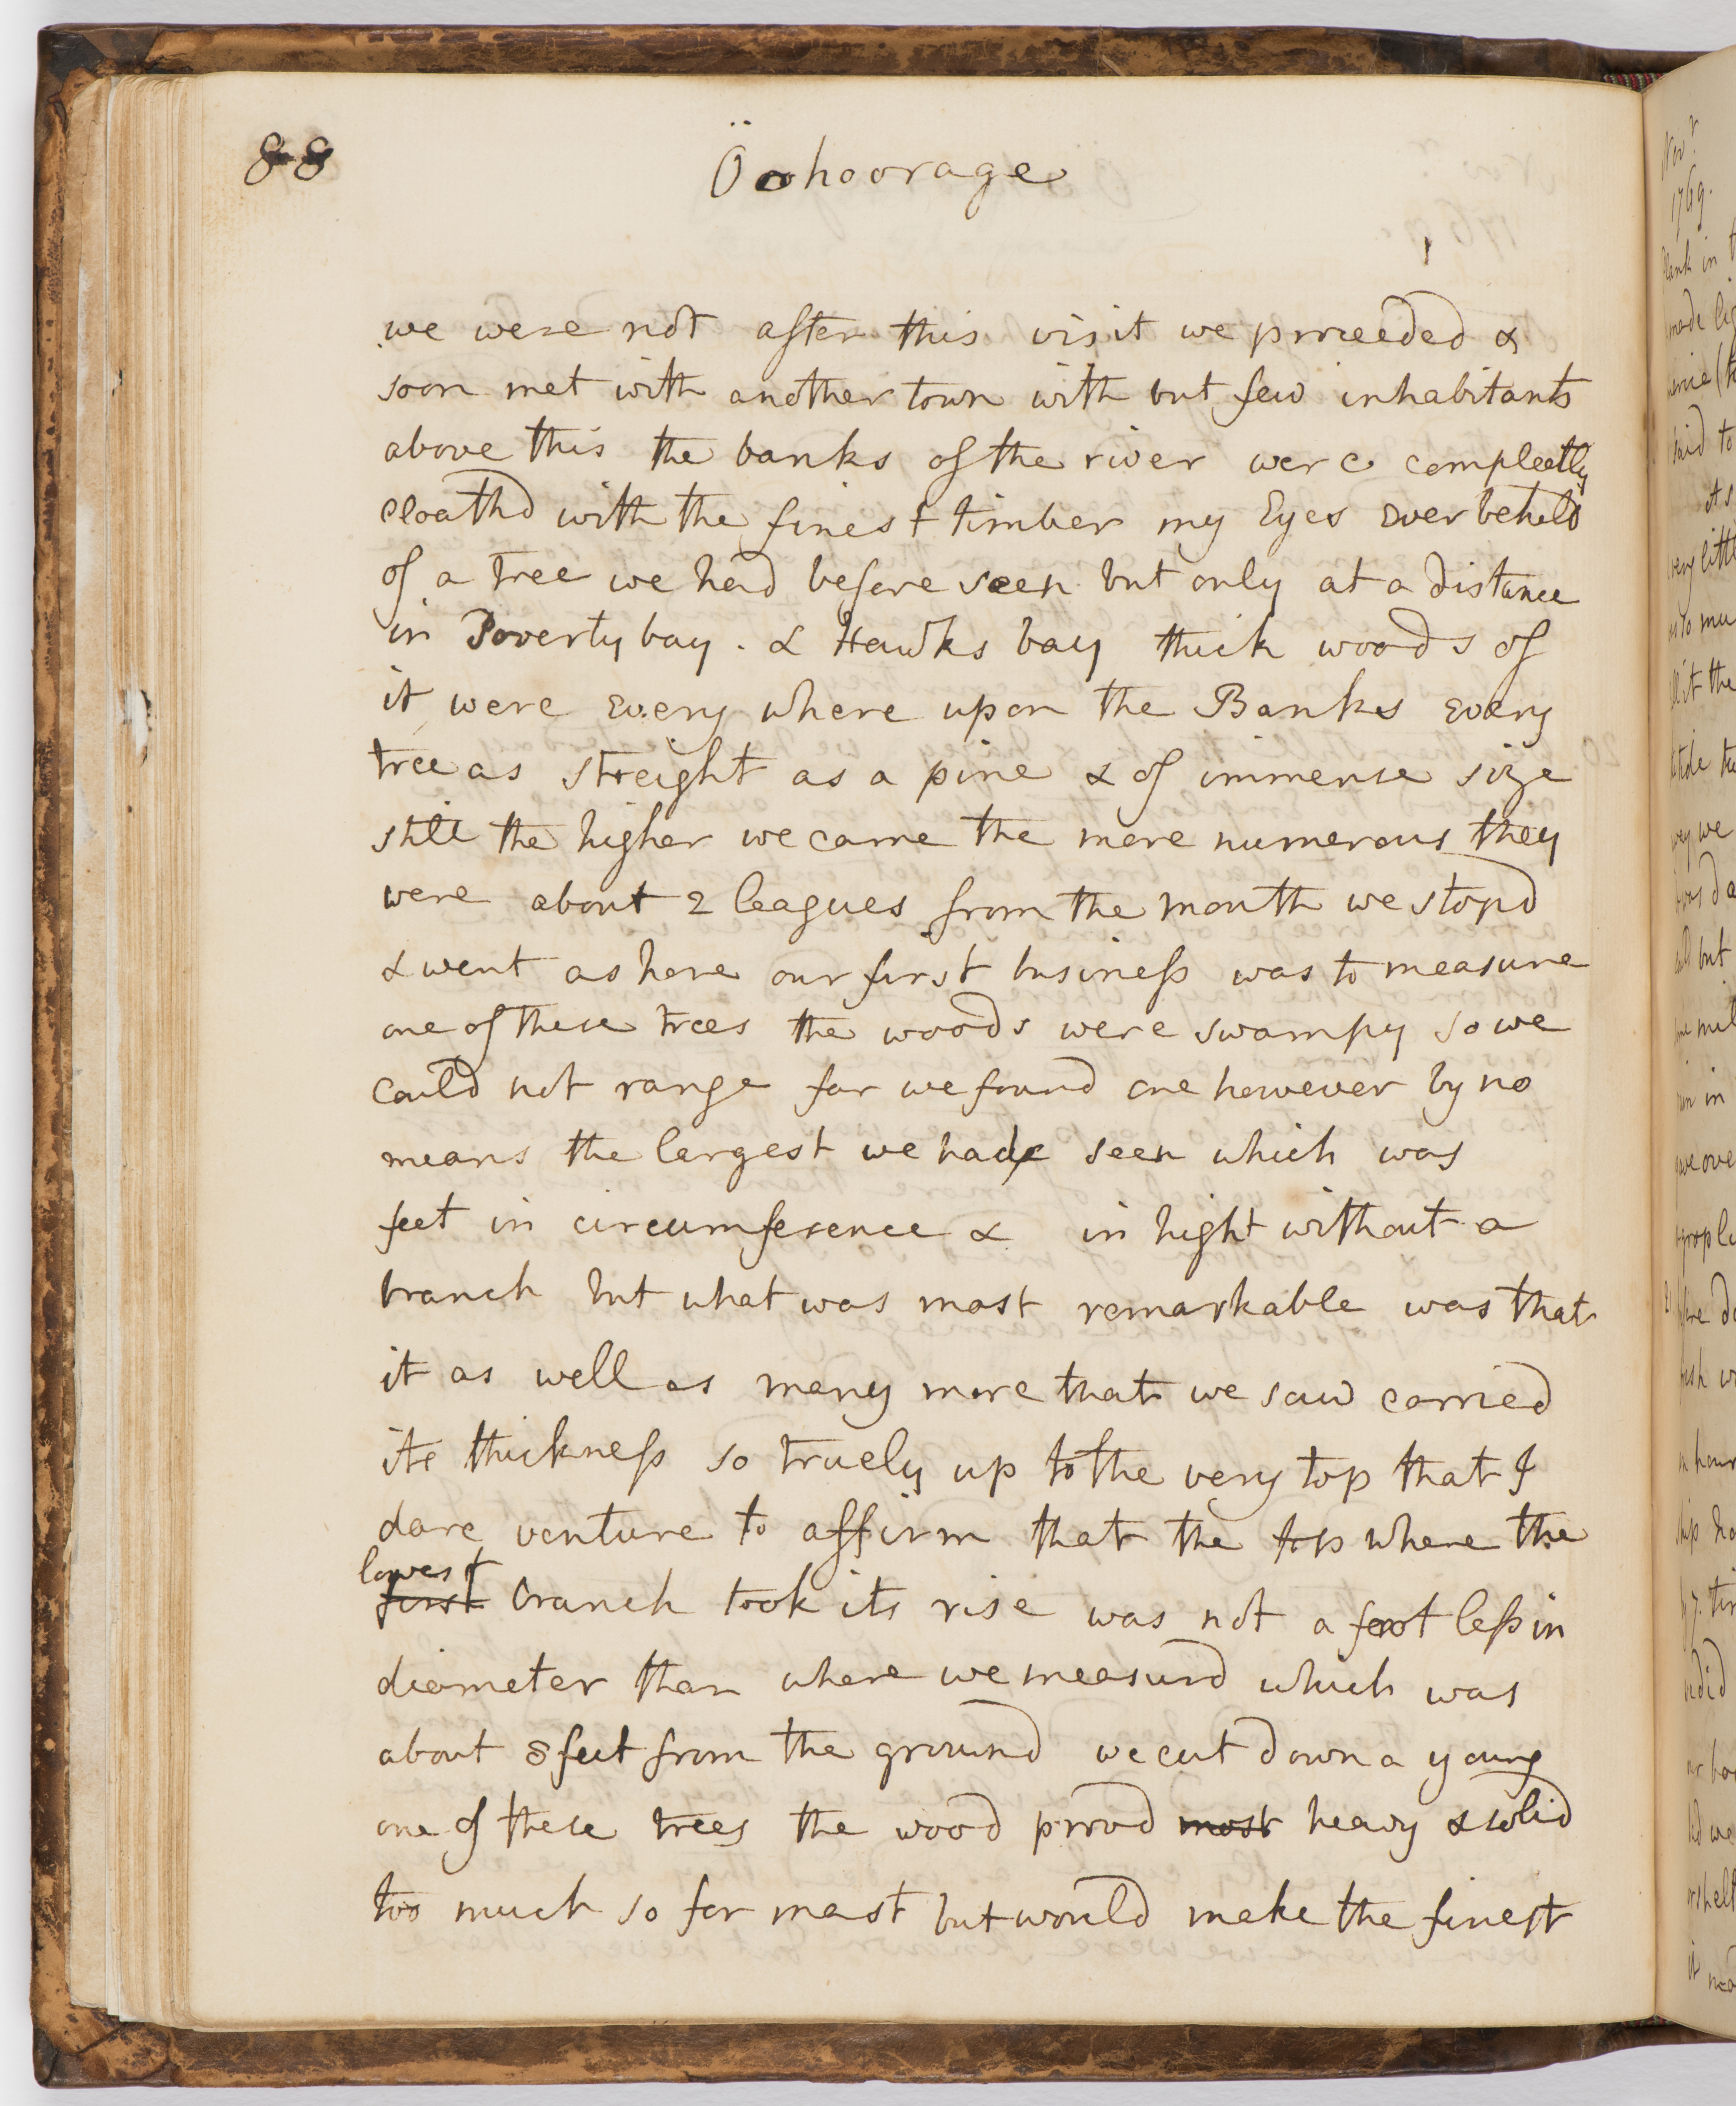 88
Öohoorage
we were not after this visit we proceeded &
soon met with another town with but few inhabitants
above this the banks of the river were compleetly
cloathd with the finest timber my Eyes ever beheld
of a tree we had before seen but only at a distance
in Poverty bay . & Hawks bay thick woods of
it were every where upon the Banks every
tree as streight as a pine & of immense size
still the higher we came the more numerous they
were about 2 leagues from the mouth we stopd
& went ashore our first business was to measure
one of these trees the woods were swampy so we
could not range far we found one however by no
means the largest we had seen which was
feet in circumference & in hight without a
branch but what was most remarkable was that
it as well as many more that we saw carried
its thickness so truely up to the very top that I
dare venture to affirm that the top where the
lowest
first branch took its rise was not a foot less in
diameter than where we measurd which was
about 8 feet from the ground we cut down a young
one of these trees the wood provd most heavy & solid
too much so for mast but would make the finest
Novr
1769.
Plank in
made
said to
As
very
as to
it the
we
but
in
2
hour